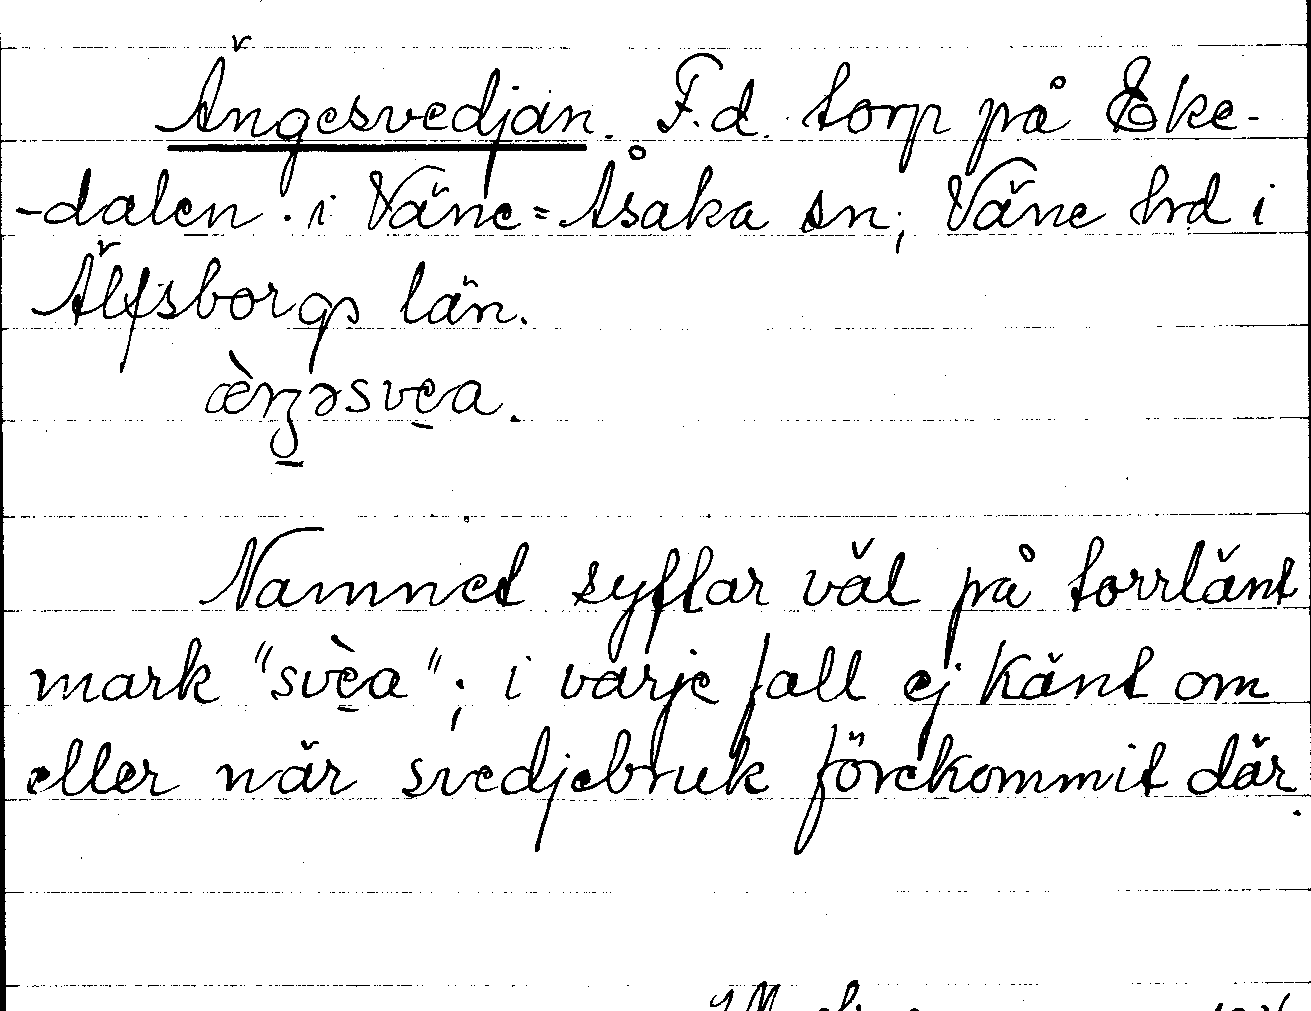 Ängesvedjan. F.d. torp på Eke-
-dalen i Väne=Åsaka sn; Väne hrd i
Älfsborgs län.
æ̀ŋəsve̱a.
Namnet syftar väl på torrlänt
mark "svè̱a"; i varje fall ej känt om
eller när svedjebruk förekommit där.